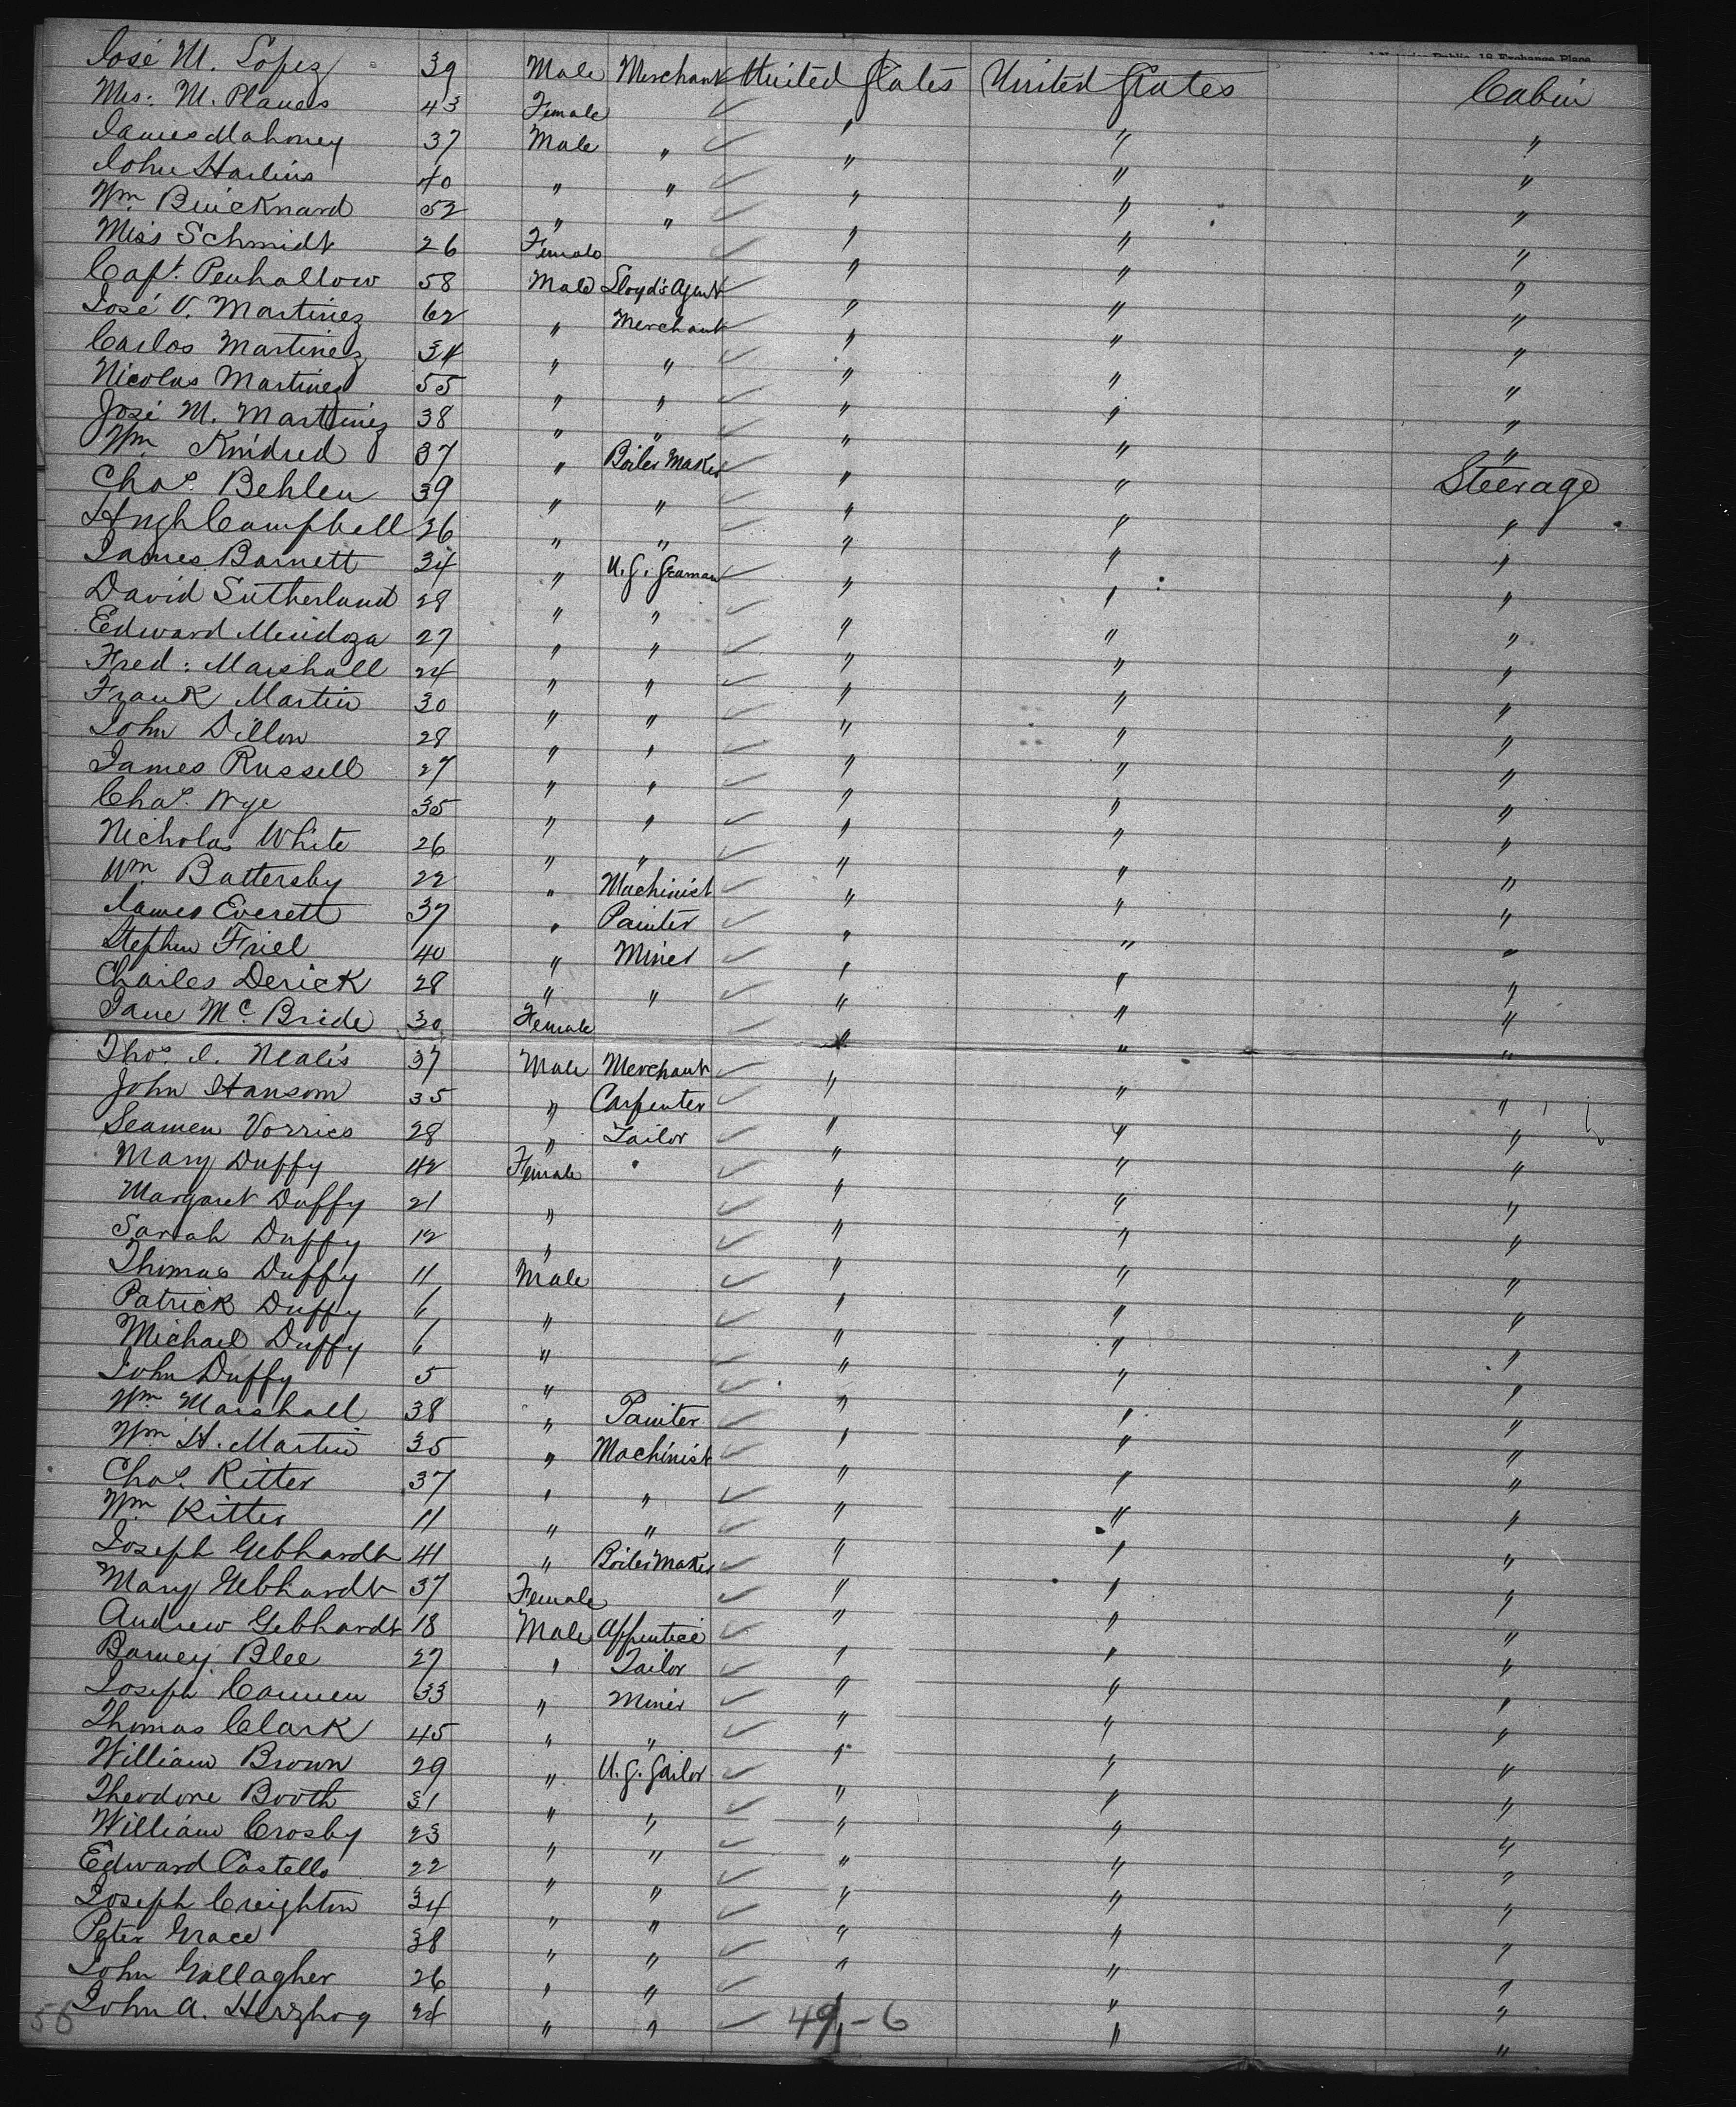 Notaries Public, 18 Exchange Place
José M. Lopez 39 Male Merchant United States United States Cabin
Mrs: M. Planas 43 Female " " "
James Mahoney 37 Male " " " "
John Harlins 40 " " " " "
Wm Buicknard 52 " " " " "
Miss Schmidt 26 Female " " "
Capt. Penhallow 58 Male Lloyd's Agent " " "
José V. Martinez 62 " Merchant " " "
Carlos Martinez 34 " " " " "
Nicolas Martinez 55 " " " " "
José M. Martinez 38 " " " " "
Wm Kindred 37 " Boiler Maker " " Steerage
Chas. Behlen 39 " " " " "
Hugh Campbell 26 " " " " "
James Barnett 34 " U.S. Seaman " " "
David Sutherland 28 " " " " "
Edward Mendoza 27 " " " " "
Fred: Marshall 24 " " " " "
Frank Martin 30 " " " " "
John Dillon 28 " " " " "
James Russell 27 " " " " "
Chas. Nye 35 " " " " "
Nicholas White 26 " " " " "
Wm Battersby 22 " Machinist " " "
James Everett 37 " Painter " " "
Stephen Friel 40 " Miner " " "
Charles Derick 28 " " " " "
Jane McBride 30 Female " " "
Thos. J. Nealis 37 Male Merchant " " "
John Hansom 35 " Carpenter " " "
Seamen Vorries 28 " Tailor " " "
Mary Duffy 42 Female " " "
Margaret Duffy 21 " " " "
Sarah Duffy 12 " " " "
Thomas Duffy 11 Male " " "
Patrick Duffy 6 " " " "
Michael Duffy 6 " " " "
John Duffy 5 " " " "
Wm Marshall 38 " Painter " " "
Wm H. Martin 35 " Machinist " " "
Chas. Ritter 37 " " " " "
Wm Ritter 11 " " " " "
Joseph Gebhardt 41 " Boiler Maker " " "
Mary Gebhardt 37 Female " " "
Andrew Gebhardt 18 Male Apprentice " " "
Barney Blee 27 " Tailor " " "
Joseph Cannen 33 " Miner " " "
Thomas Clark 45 " " " " "
William Brown 29 " U.S. Sailor " " "
Theodore Booth 31 " " " " "
William Crosby 23 " " " " "
Edward Costello 22 " " " " "
Joseph Creighton 34 " " " " "
Peter Grace 38 " " " " "
John Gallagher 26 " " " " "
John A. Herzhog 24 " " " " "
49-6